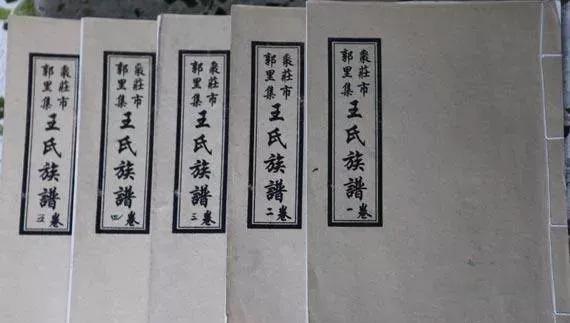 棗莊市
郭里集
王氏族譜
卷一
棗莊市
郭里集
王氏族譜
卷二
棗莊市
郭里集
王氏族譜
卷三
棗莊市
郭里集
王氏族譜
卷四
棗莊市
郭里集
王氏族譜
卷五